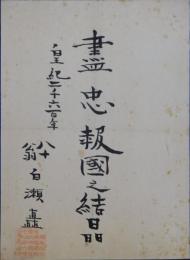 盡忠報國之結晶
皇紀二千六百年
八十翁白瀬矗